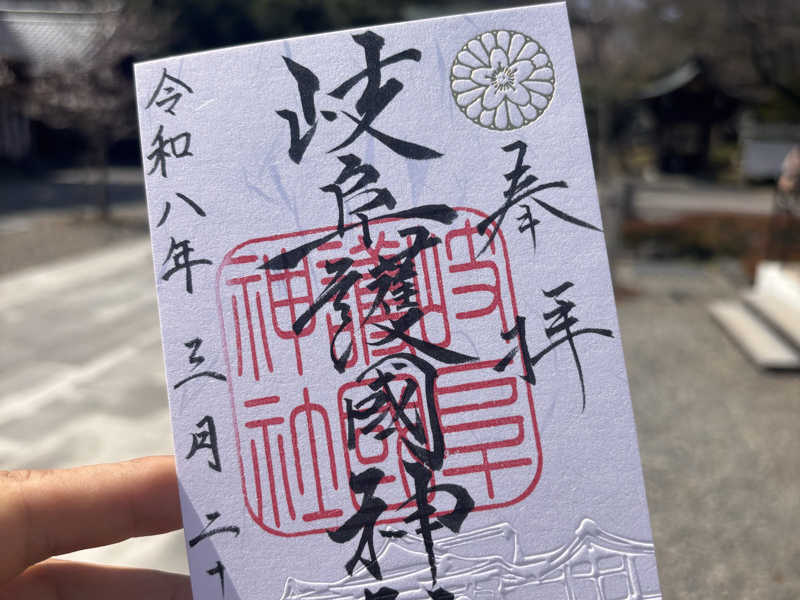 奉拝
岐阜護國神
岐阜
護國
神社
令和八年三月二十